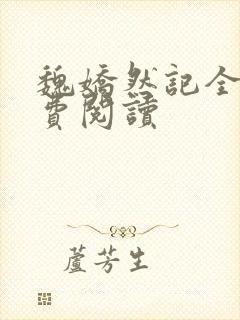 魏嬌然記全
費閱讀
蘆芳生